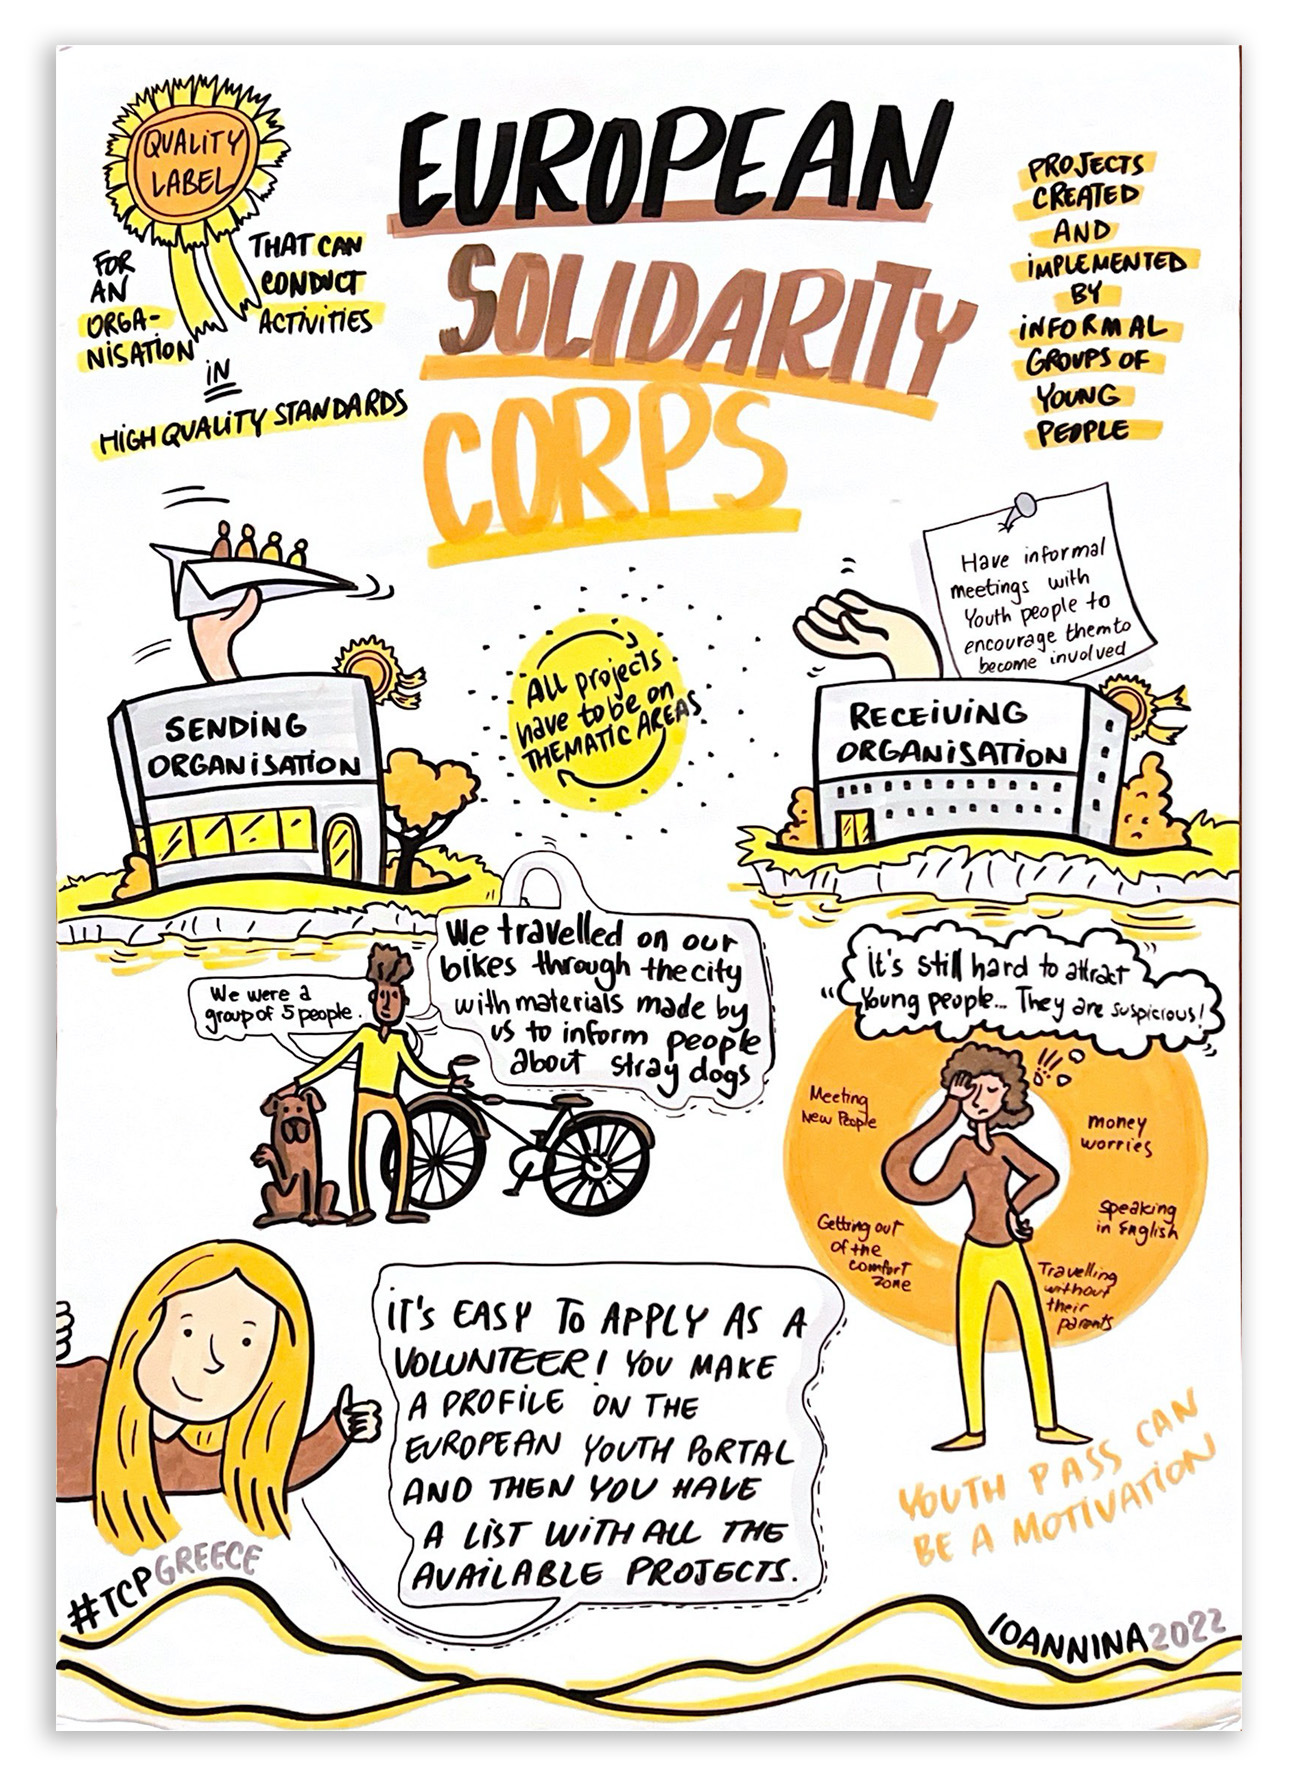 QUALITY
LABEL
FOR
AN
ORGA-
NISATION
THAT CAN
CONDUCT
ACTIVITIES
IN
HIGH QUALITY STANDARDS
EUROPEAN
SOLIDARITY
CORPS
PROJECTS
CREATED
AND
IMPLEMENTED
BY
INFORMAL
GROUPS OF
YOUNG
PEOPLE
SENDING
ORGANISATION
All projects
have to be on
THEMATIC AREAS
Have informal
meetings with
Youth people to
encourage them to
become involved
RECEIVING
ORGANISATION
We were a
group of 5 people.
We travelled on our
bikes through the city
with materials made by
us to inform people
about stray dogs
it's still hard to attract
Young people... They are suspicious!
Meeting
New People
Getting out
of the
comfort
zone
money
worries
speaking
in English
Travelling
without
their
parents
YOUTH PASS CAN
BE A MOTIVATION
iT'S EASY TO APPLY AS A
VOLUNTEER! YOU MAKE
A PROFILE ON THE
EUROPEAN YOUTH PORTAL
AND THEN YOU HAVE
A LIST WITH ALL THE
AVAILABLE PROJECTS.
#TCPGREECE
IOANNINA2022